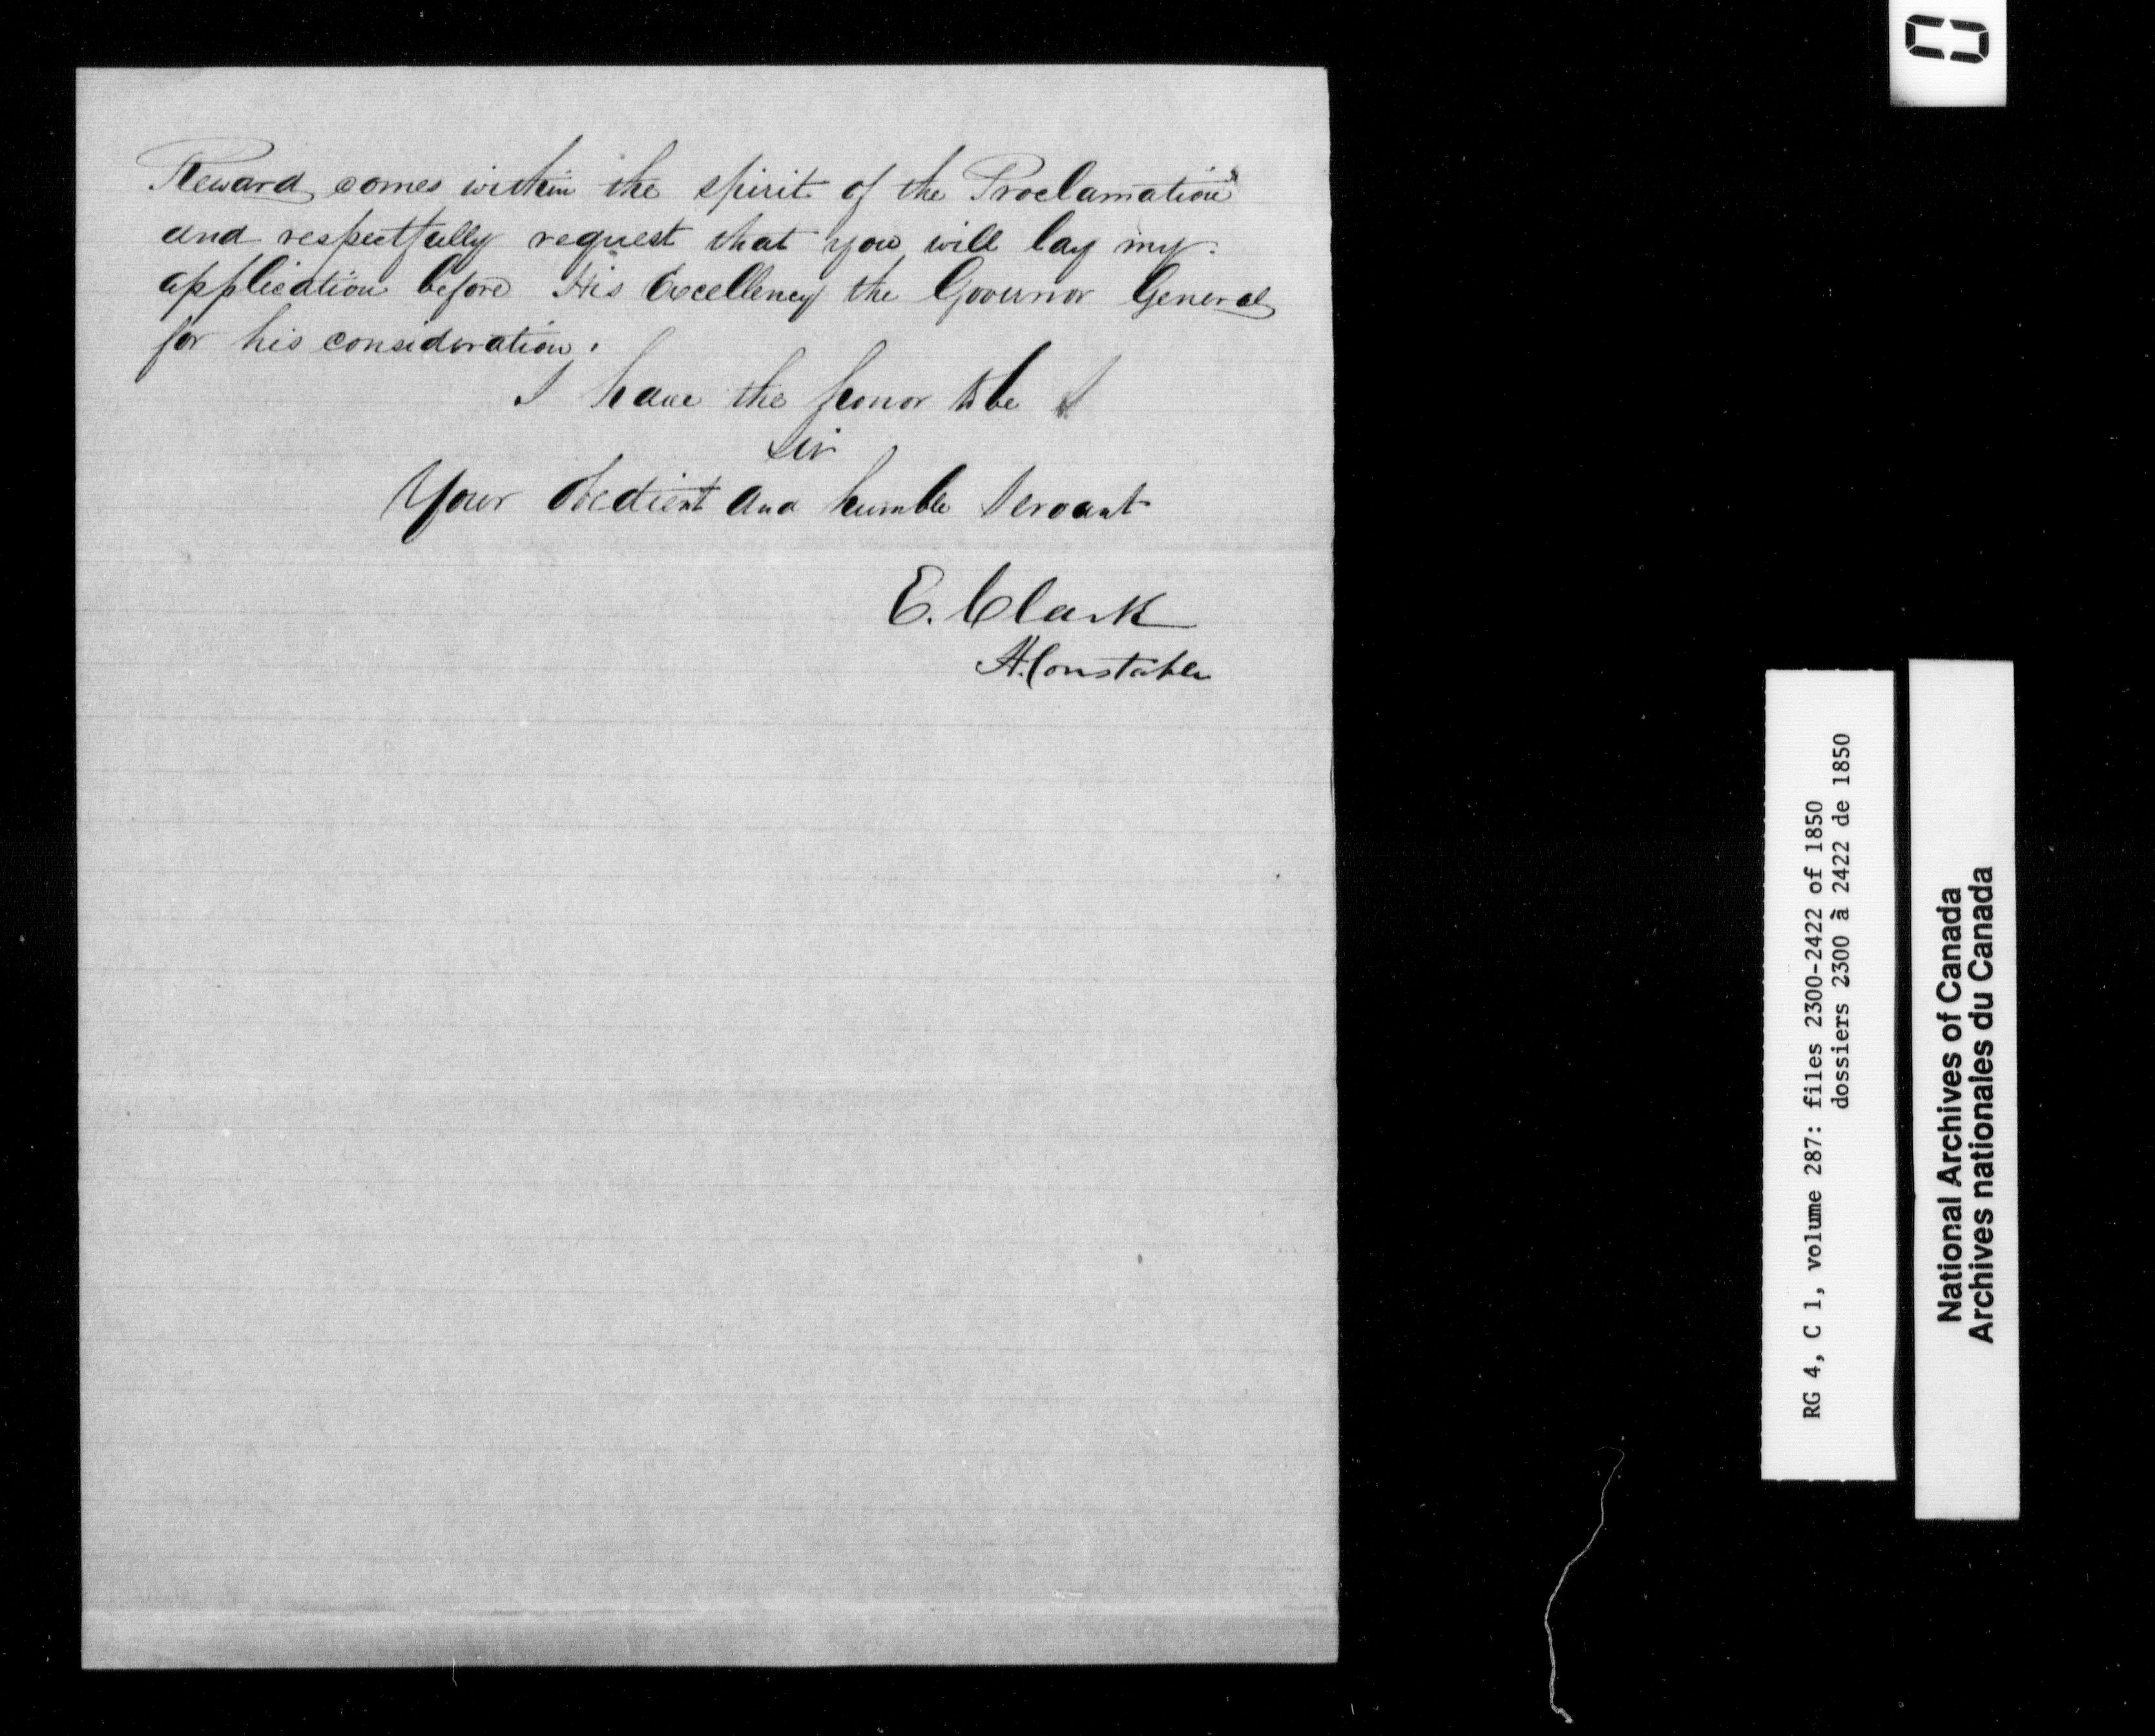 Reward comes within the spirit of the Proclamation
and respectfully request that you will lay my
application before His Excellency the Governor General
for his consideration.
I have the honor to be
Sir
Your obedient and humble Servant
E. Clark
H. Constable
0
RG 4, C 1, volume 287: files 2300-2422 of 1850
dossiers 2300 à 2422 de 1850
National Archives of Canada
Archives nationales du Canada